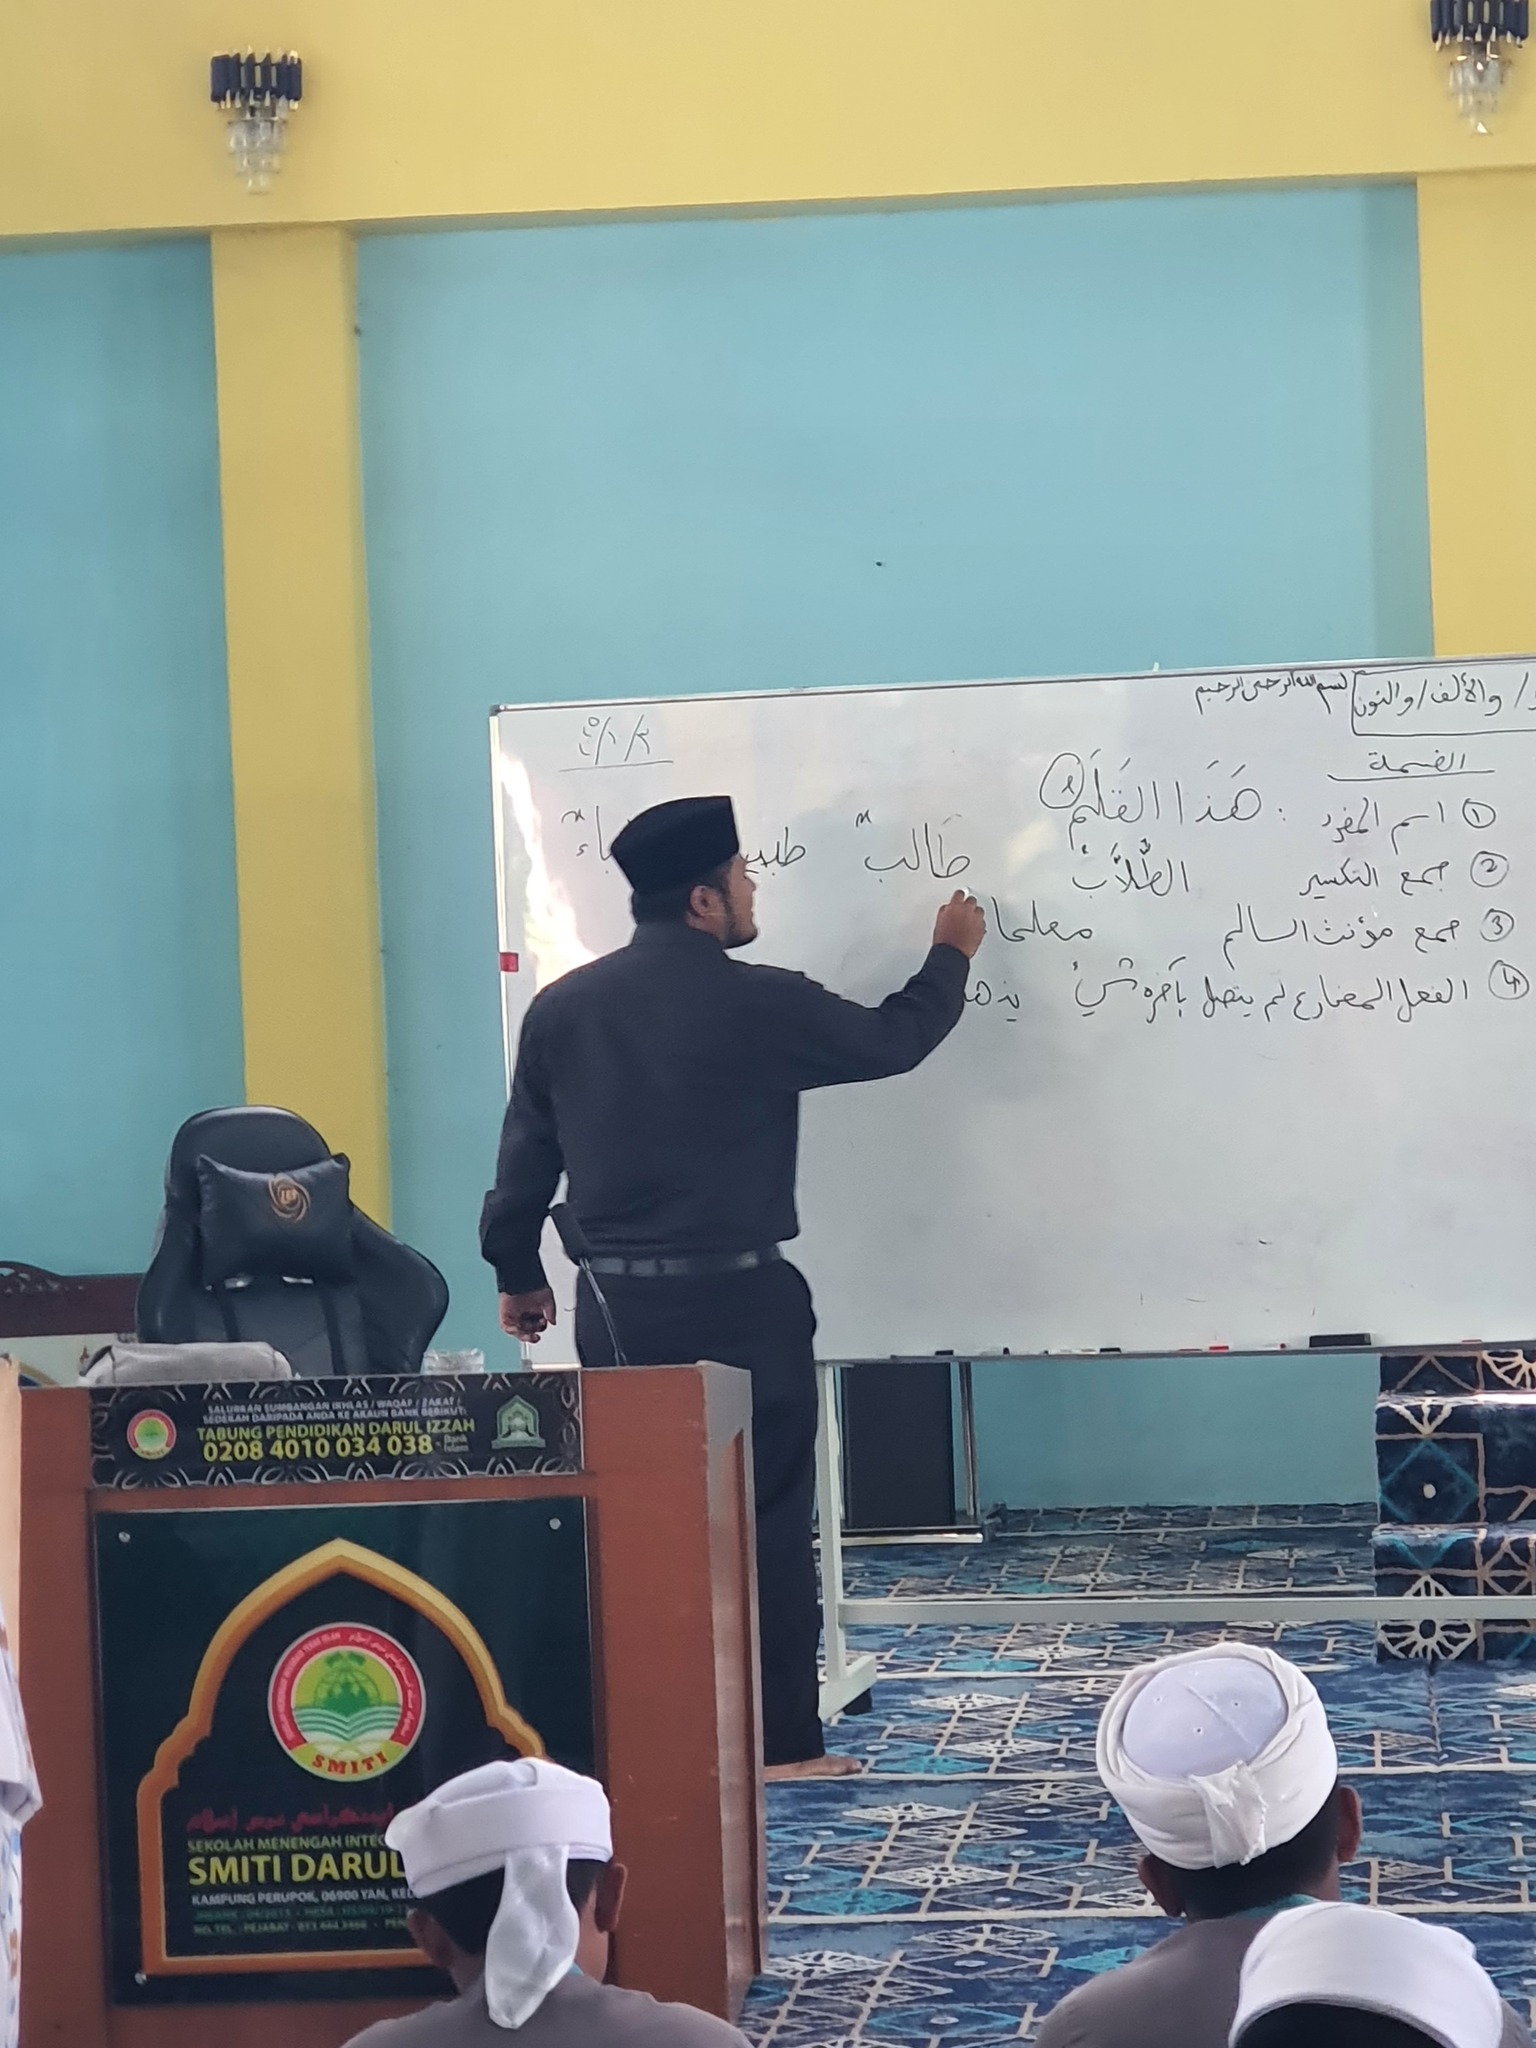 بسم الله الرحمن الرحيم
والألف / والنون
الضمة
① اسم المفرد : هَذَا القَلَمُ
② جمع التكسير الطُّلَّابُ طَالب طبيب
③ جمع مؤنث السالم معلما
④ الفعل المضارع لم يتصل بآخره شيءٌ يذهب
SALURKAN SUMBANGAN IKHLAS / WAQAF / ZAKAT /
SEDEKAH DARIPADA ANDA KE AKAUN BANK BERIKUT:
TABUNG PENDIDIKAN DARUL IZZAH
0208 4010 034 038 - Bank Islam
SMITI
SEKOLAH MENENGAH INTEG
SMITI DARUL
KAMPUNG PERUPOK, 06900 YAN, KED